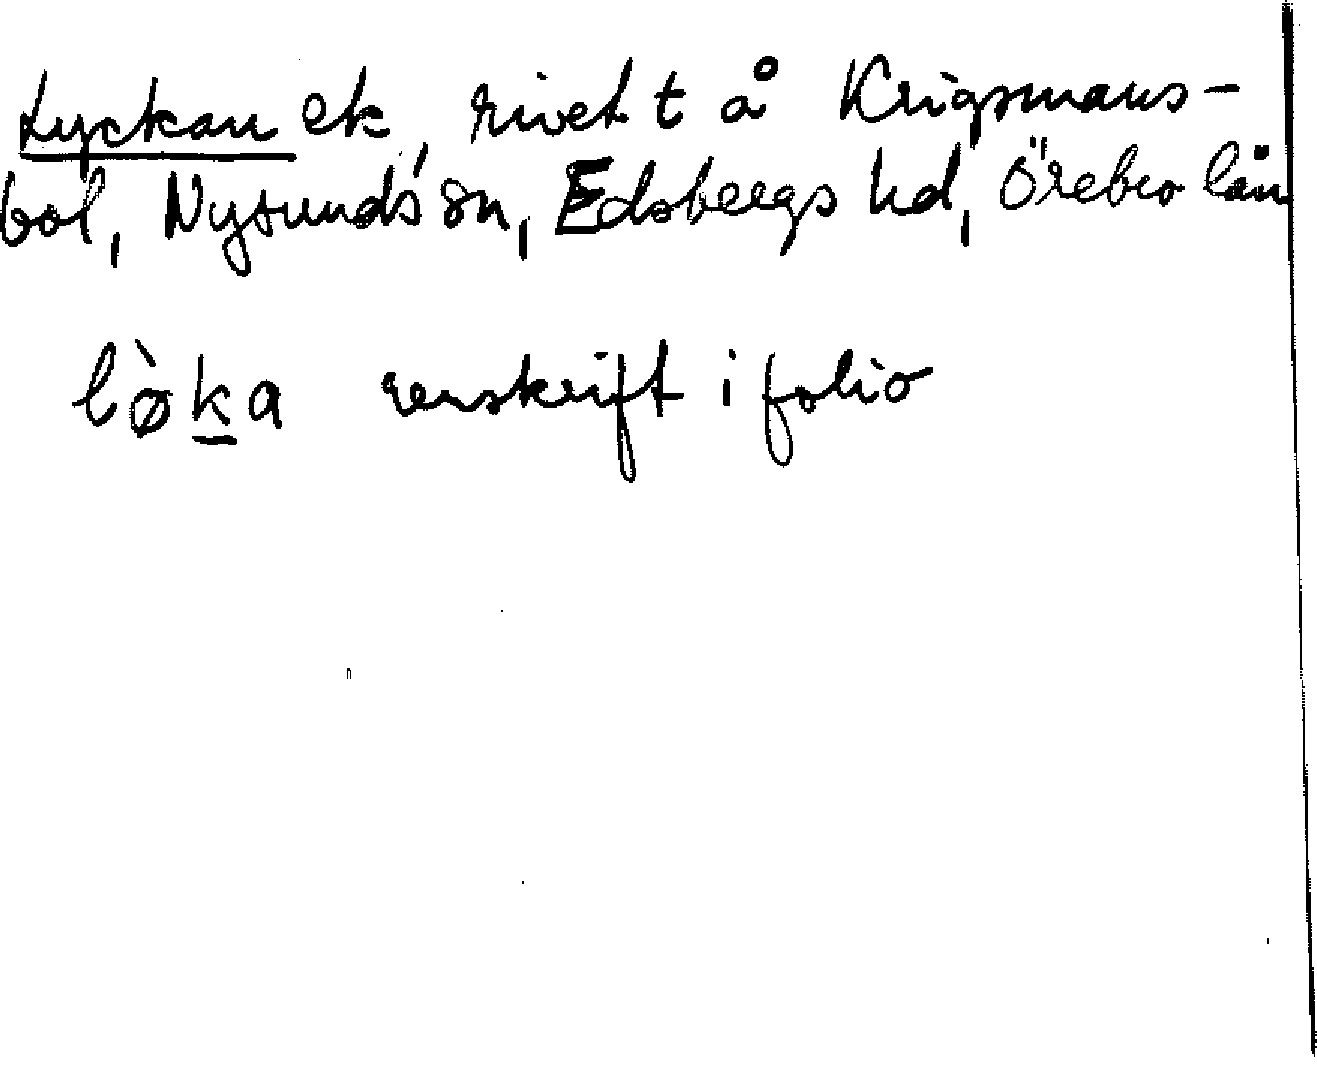 Lyckan ek, rivet t å Krigsmans-
bol, Nysunds sn, Edsbergs hd, Örebro län
lø̀ka renskrift i folio